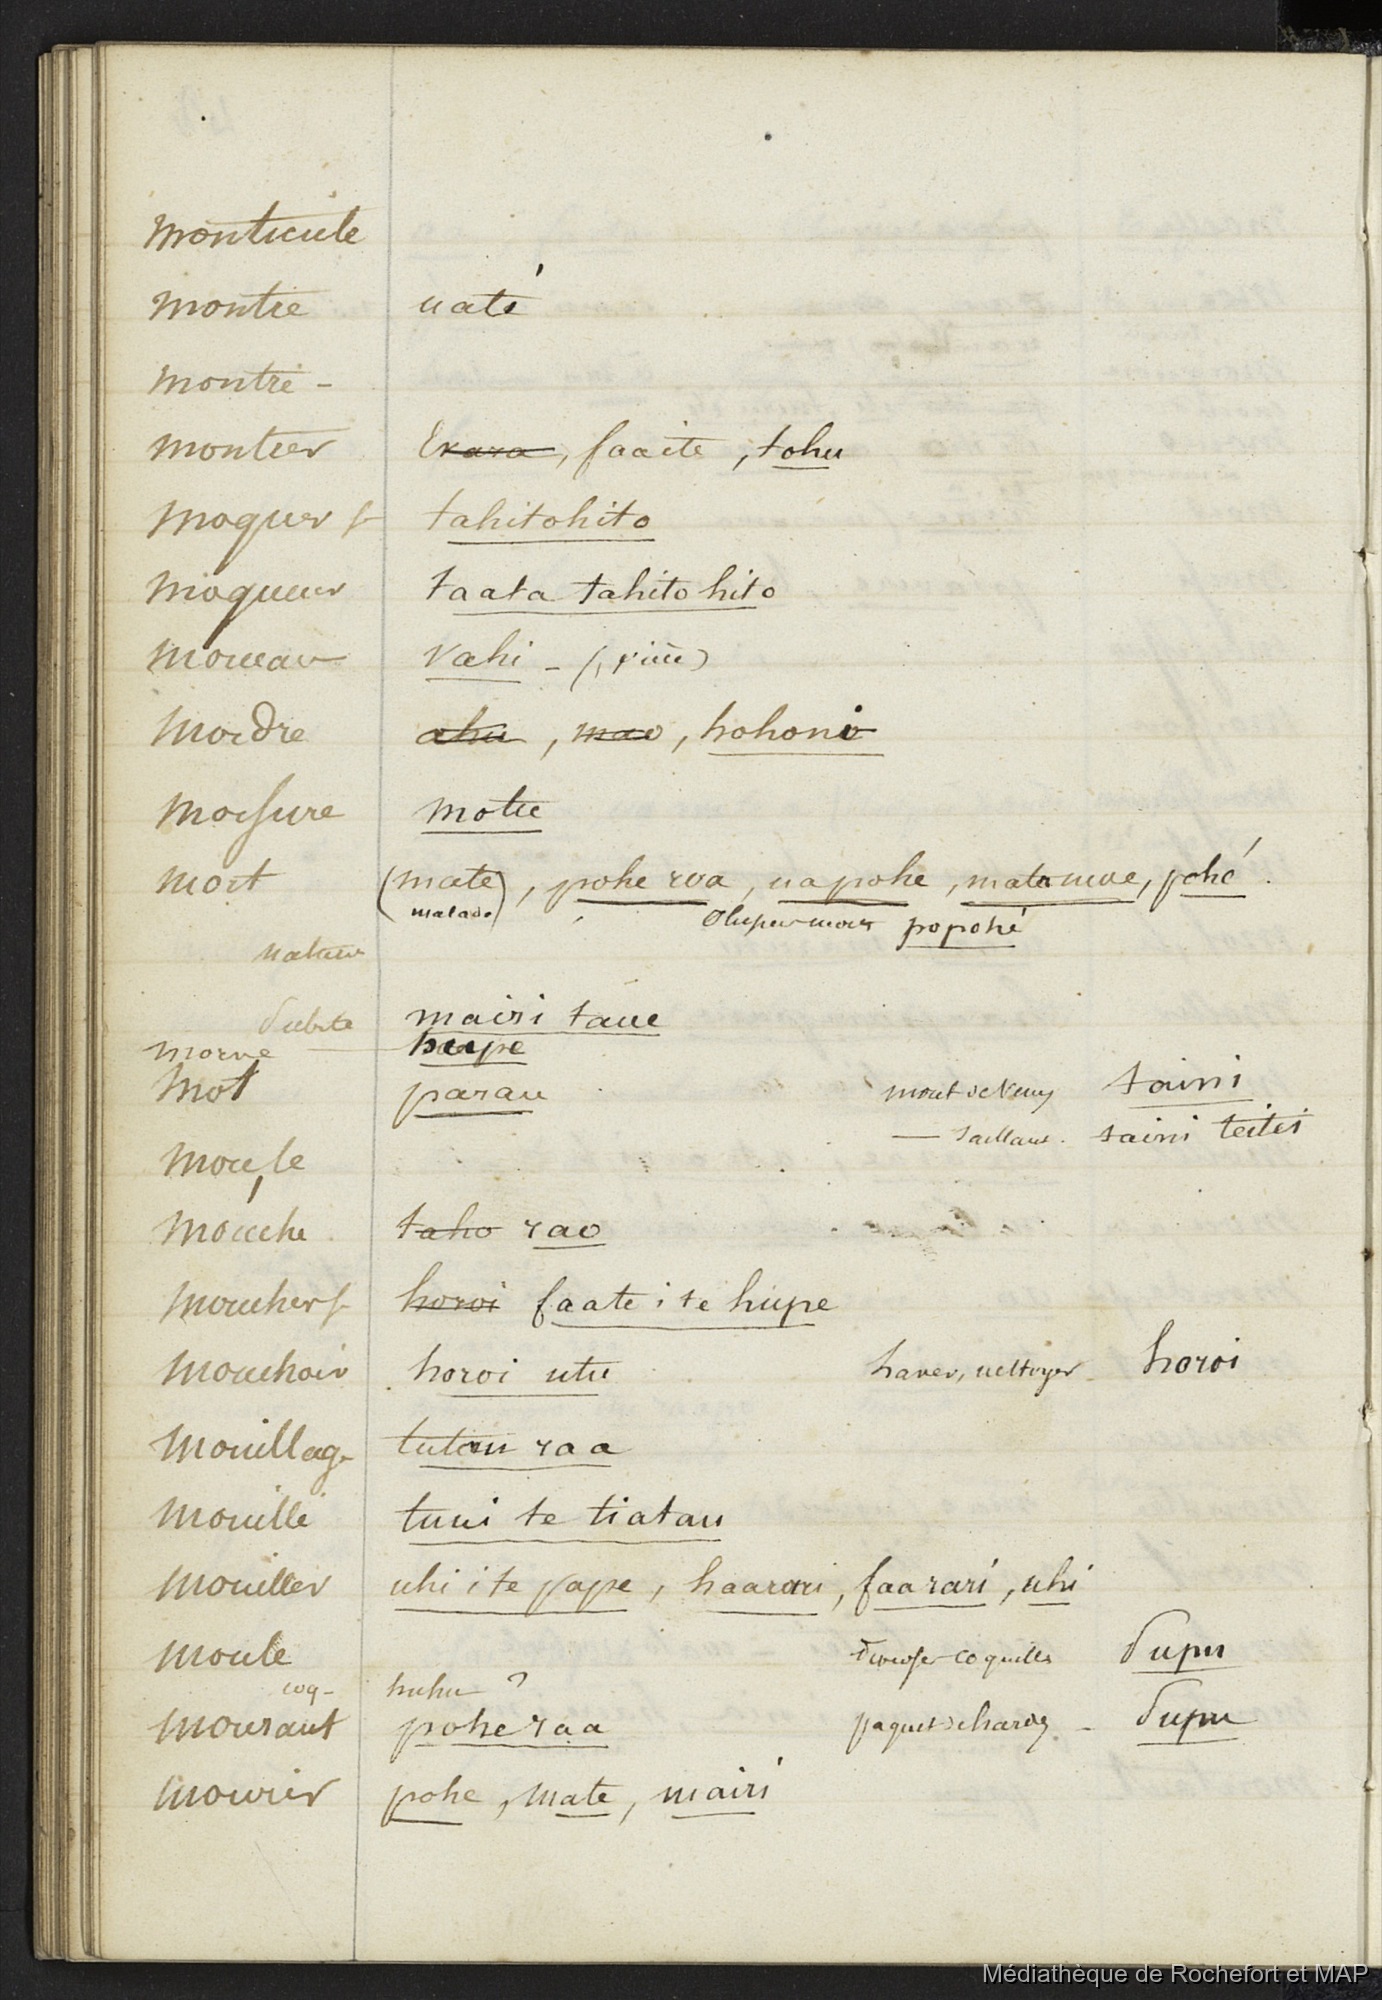 monticule
montre uaté
montré -
montrer Exara, faaite, tohu
moquer s- tahitohito
moqueur taata tahitohito
morceau vahi - (, pièce)
mordre ahu, mao, hohoni
morsure motu
mort (mate), pohe roa, ua pohe, matemoe, pohé.
malade popohé
nature
subite mairi taue
morve hupe
mot parau mont de Vénus tairi
— saillant. taini teitei
moufle
mouche taho rao
moucher s- horoi faate i te hupe
mouchoir horoi utu laver, nettoyer - horoi
mouillage tutau raa
mouillé tuui te tiatau
mouiller uhi i te pape, haarari, faarari, uhi
moule diverses coquilles pupu
coq- huhu ?
mourant pohe raa paquet de hardes - pupu
mourir pohe, mate, mairi
Médiathèque de Rochefort et MAP